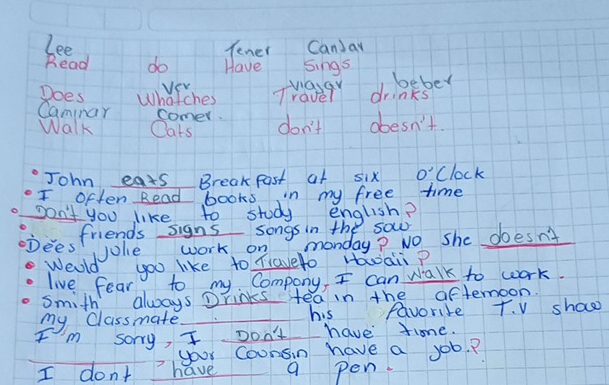 Lee Tener Cantar
Read do Have Sings
Ver Viajar beber
Does Whatches Travel drinks
Caminar Comer.
Walk Eats don't doesn't.
• John eats Breakfast at six O'Clock
• I often Read books in my free time
• Don't you like to study english?
• friends signs songs in the sow
• Does Julie work on monday? No she doesn't
• Would you like to Travel to Hawaii?
• live fear to my Company, I can walk to work.
• Smith always Drinks tea in the afternoon.
my Classmate ______ his favorite T.V show
I'm sorry, I Don't have time.
______, your Counsin have a job.?
I dont have a pen.